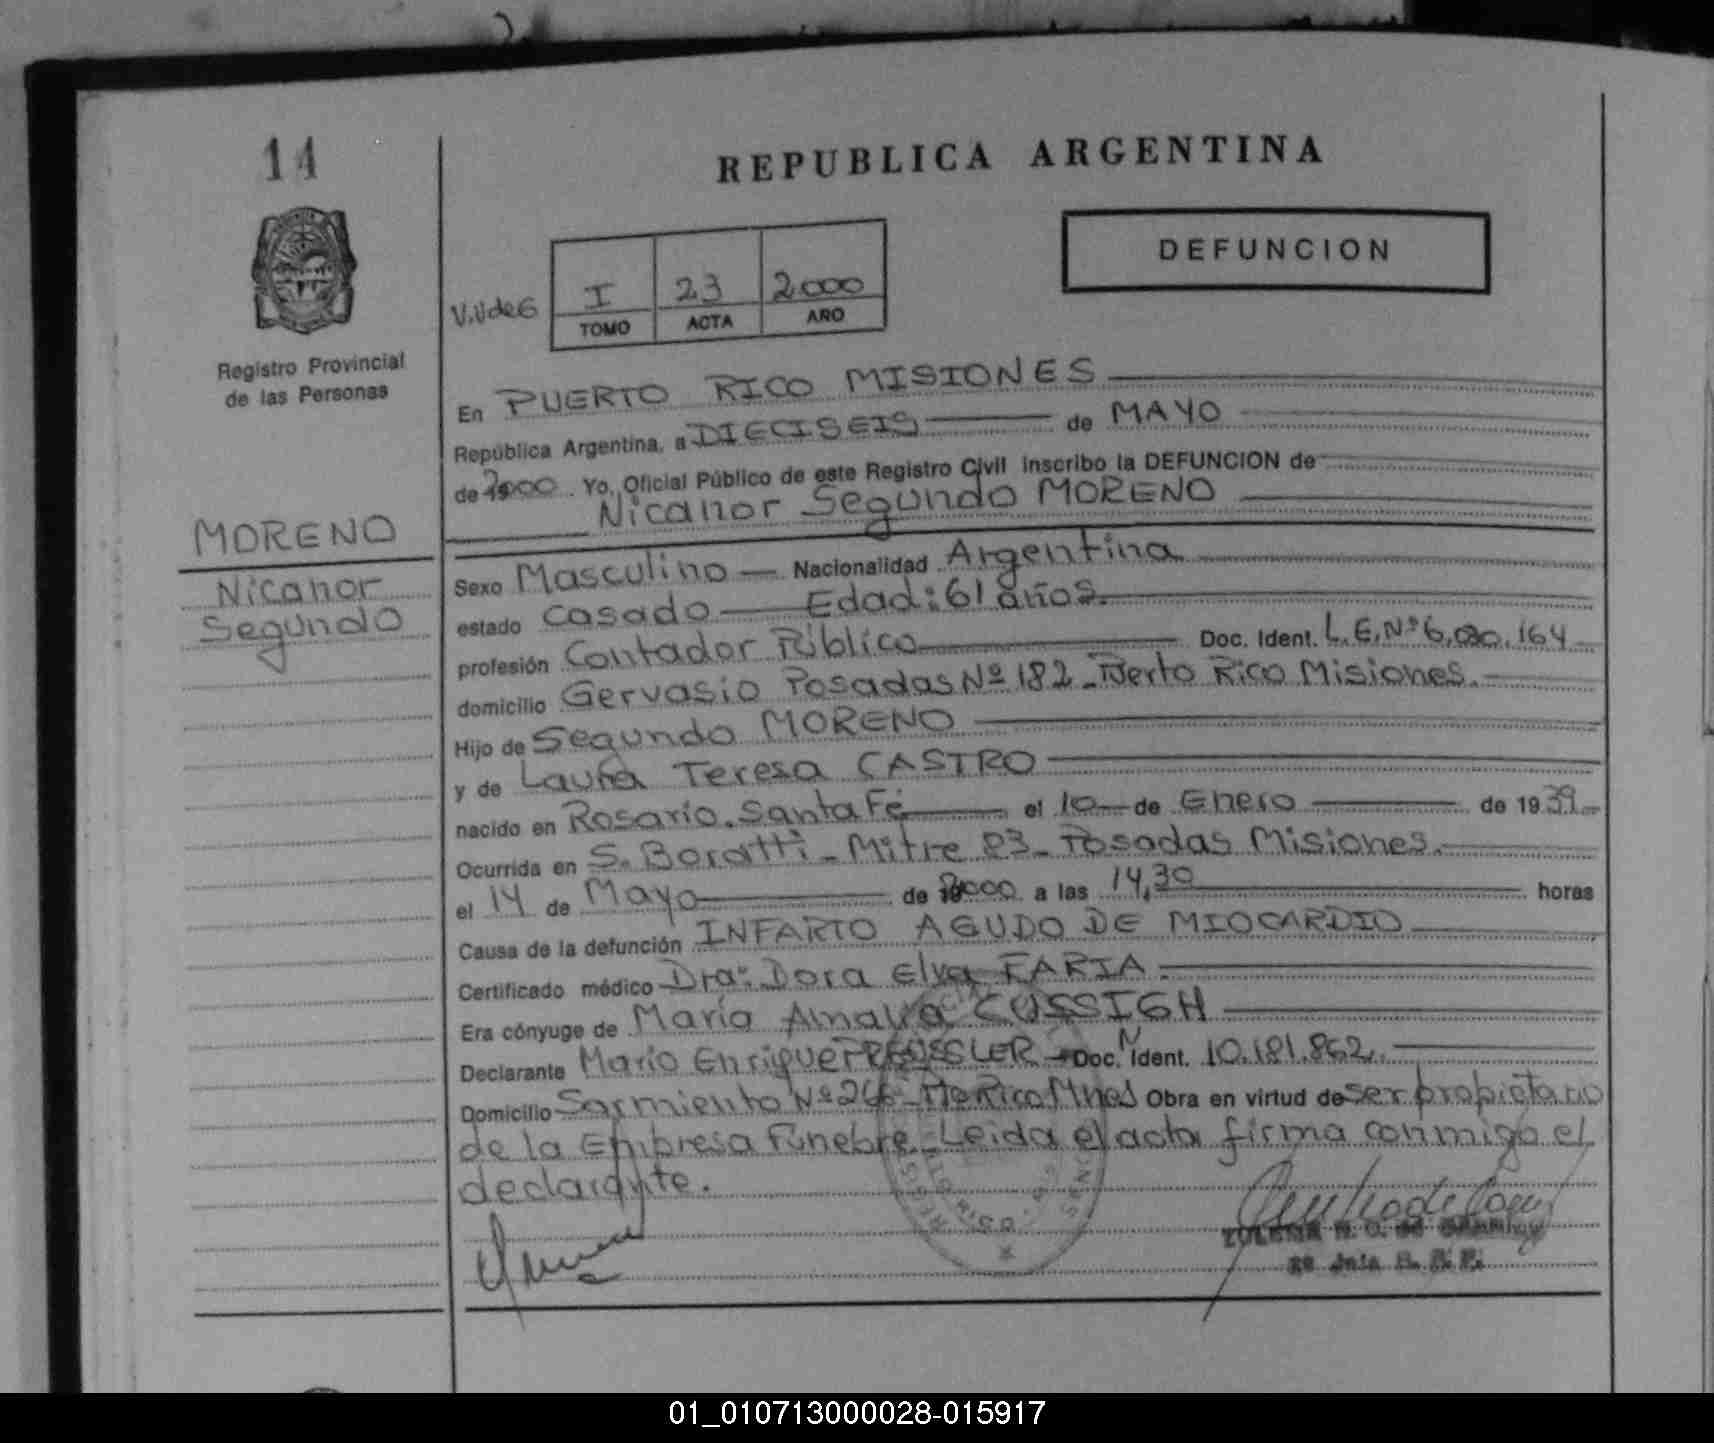 14
REPUBLICA ARGENTINA
DEFUNCION
V.V de G
I 23 2000
TOMO ACTA AÑO
Registro Provincial
de las Personas
En PUERTO RICO MISIONES
República Argentina, a DIECISEIS de MAYO
de 2000 Yo, Oficial Público de este Registro Civil inscribo la DEFUNCION de
Nicanor Segundo MORENO
MORENO
Nicanor
Segundo
Sexo Masculino Nacionalidad Argentina
estado casado Edad: 61 años.
profesión Contador Público Doc. Ident. L.E. Nº 6.020.164
domicilio Gervasio Posadas Nº 182 - Puerto Rico Misiones.
Hijo de Segundo MORENO
y de Laura Teresa CASTRO
nacido en Rosario. Santa Fé el 10 de Enero de 1939
Ocurrida en S. Boratti - Mitre 83 - Posadas Misiones.
el 14 de Mayo de 2000 a las 14,30 horas
Causa de la defunción INFARTO AGUDO DE MIOCARDIO
Certificado médico Dra: Dora Elva FARIA.
Era cónyuge de María Amalia COSSIGH
Declarante Mario Enrique PREUSSLER Doc. N Ident. 10.181.862.
Domicilio Sarmiento Nº 266 - Pto Rico Mnes Obra en virtud de ser propietario
de la Empresa Funebre - Leida el acta firma conmigo el
declarante.
01_010713000028-015917